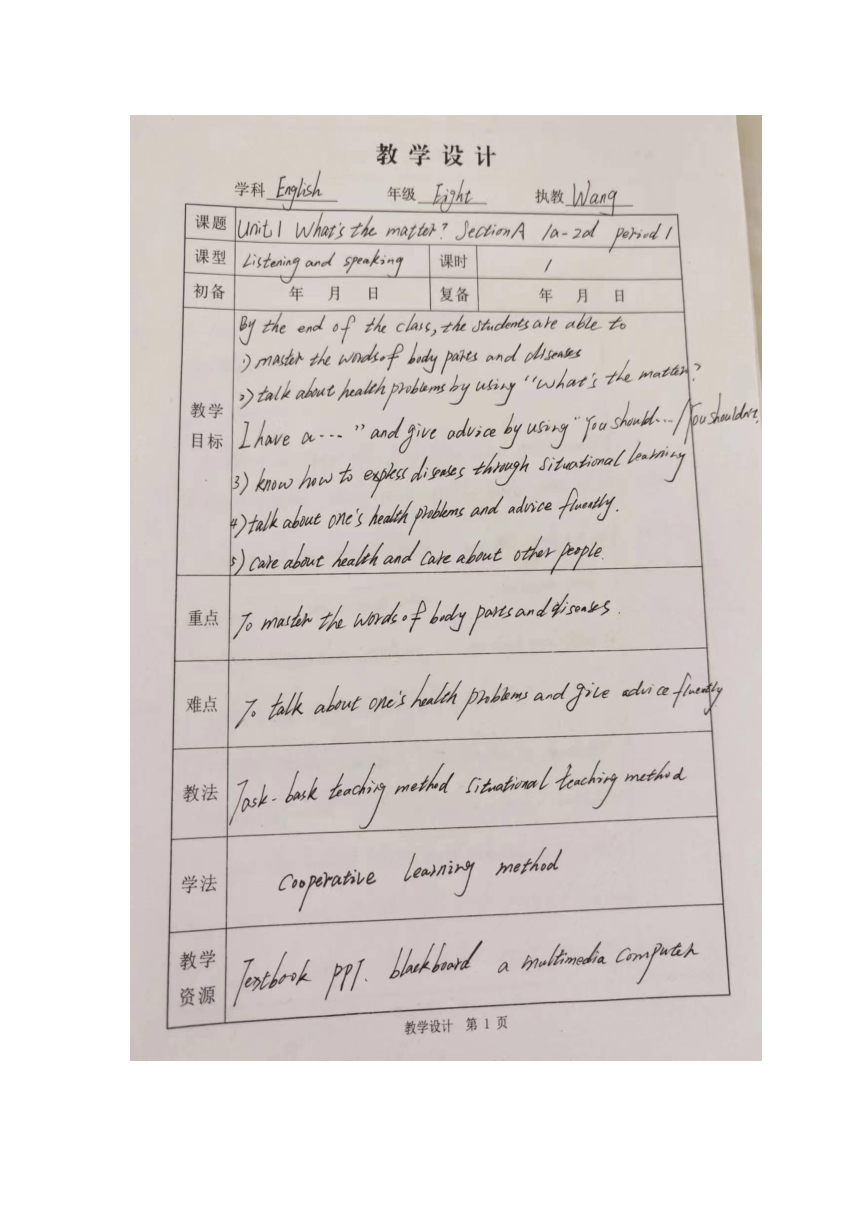 教学设计
学科 English 年级 Eight 执教 Wang
课题 Unit 1 What's the matter? Section A 1a-2d period 1
课型 Listening and speaking 课时 1
初备 年 月 日 复备 年 月 日
教学目标
By the end of the class, the students are able to
1) master the words of body parts and diseases
2) talk about health problems by using "What's the matter?
I have a ..." and give advice by using "You should.../You shouldn't.
3) know how to express diseases through situational learning
4) talk about one's health problems and advice fluently.
5) care about health and care about other people.
重点 To master the words of body parts and diseases.
难点 To talk about one's health problems and give advice fluently
教法 Task-bask teaching method situational teaching method
学法 Cooperative learning method
教学资源 Textbook PPT. blackboard a multimedia computer
教学设计 第 1 页